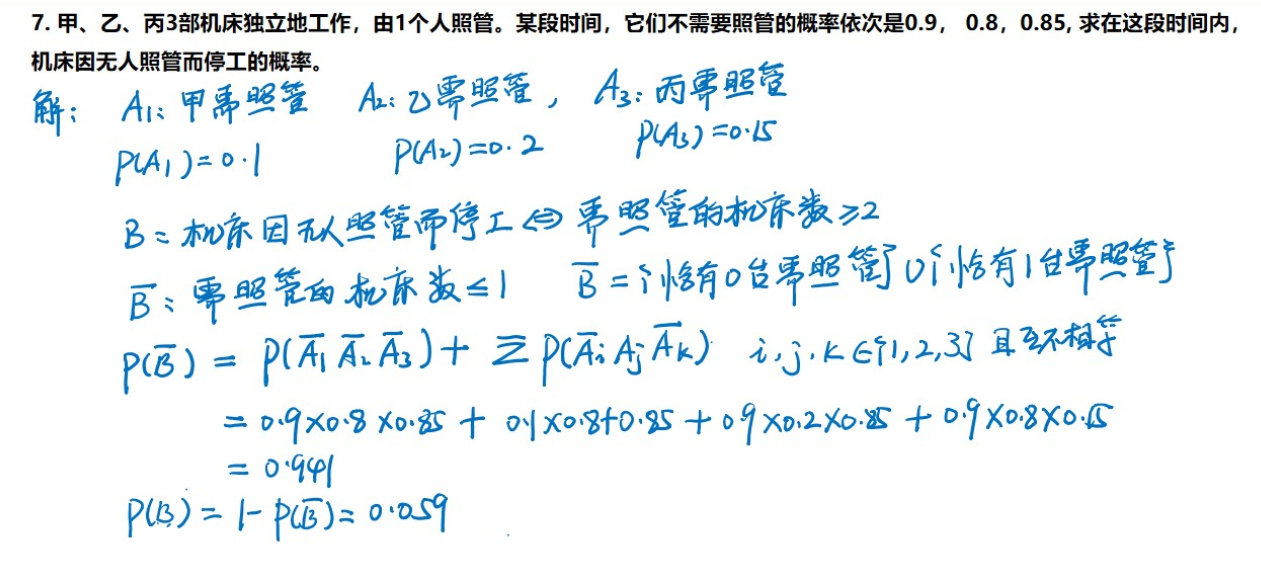 7. 甲、乙、丙3部机床独立地工作，由1个人照管。某段时间，它们不需要照管的概率依次是0.9， 0.8，0.85, 求在这段时间内，
机床因无人照管而停工的概率。
解: A₁: 甲需照管 A₂: 乙需照管, A₃: 丙需照管
P(A₁)=0.1 P(A₂)=0.2 P(A₃)=0.15
B = 机床因无人照管而停工 ⇔ 需照管的机床数 ≥2
B̅: 需照管的机床数 ≤1 B̅ = {恰有0台需照管} ∪ {恰有1台需照管}
P(B̅) = P(A̅₁ A̅₂ A̅₃) + Σ P(A̅ᵢ Aⱼ A̅ₖ) i, j, k ∈ {1,2,3} 且互不相等
= 0.9×0.8×0.85 + 0.1×0.8+0.85 + 0.9×0.2×0.85 + 0.9×0.8×0.15
= 0.941
P(B) = 1- P(B̅) = 0.059